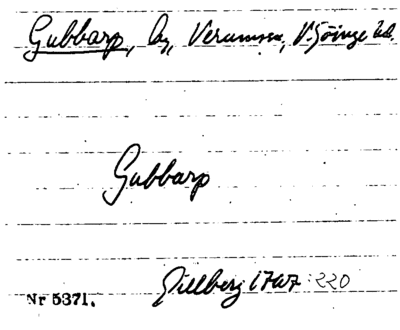 Gubbarp, by, Verumsn, V. Göinge hd.
Gubbarp
Gillberg 1767: 220
Nr 5371.